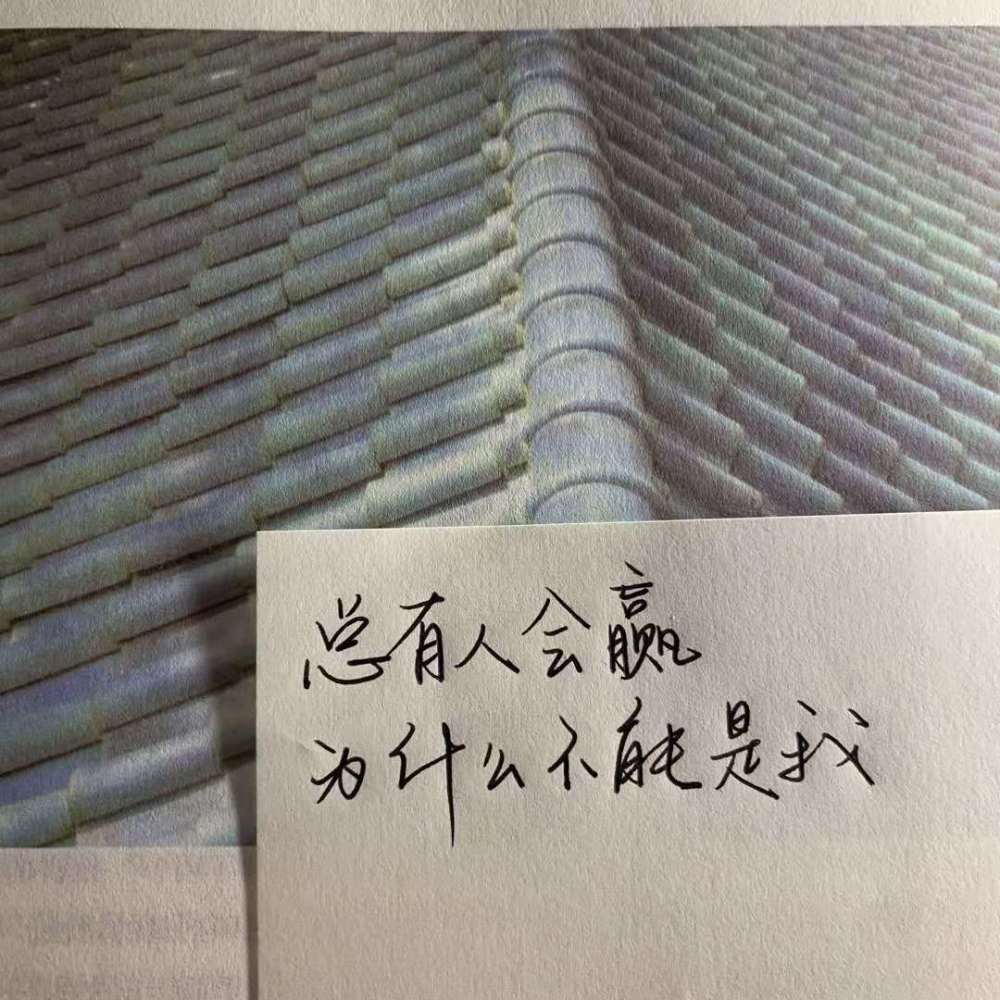 总有人会赢
为什么不能是我